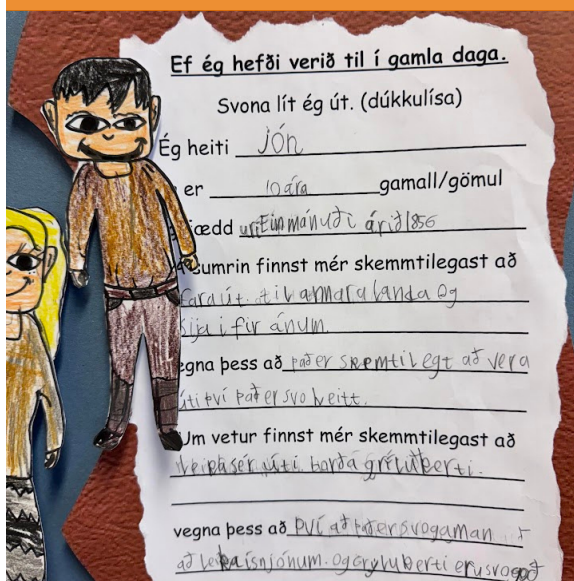 Ef ég hefði verið til í gamla daga.
Svona lít ég út. (dúkkulísa)
Ég heiti Jón
er 10 ára gamall/gömul
fædd Einmánuði árið 1856
sumrin finnst mér skemmtilegast að
fara út til annara landa og
í
vegna þess að það er skemtilegt að vera
úti því það er svo heitt.
Um vetur finnst mér skemmtilegast að
leika sér úti borða
vegna þess að því að það er svo gaman
að leika í snjónum. og eru svo